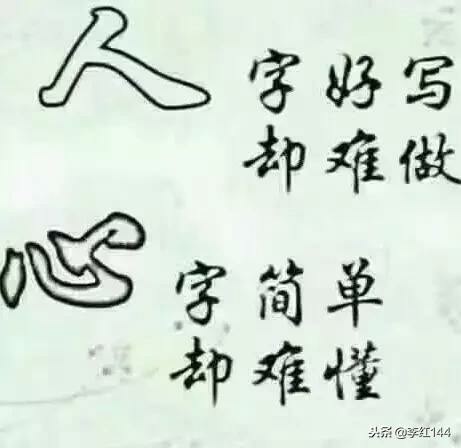 人
字好写
却难做
心
字简单
却难懂
头条 @李红144